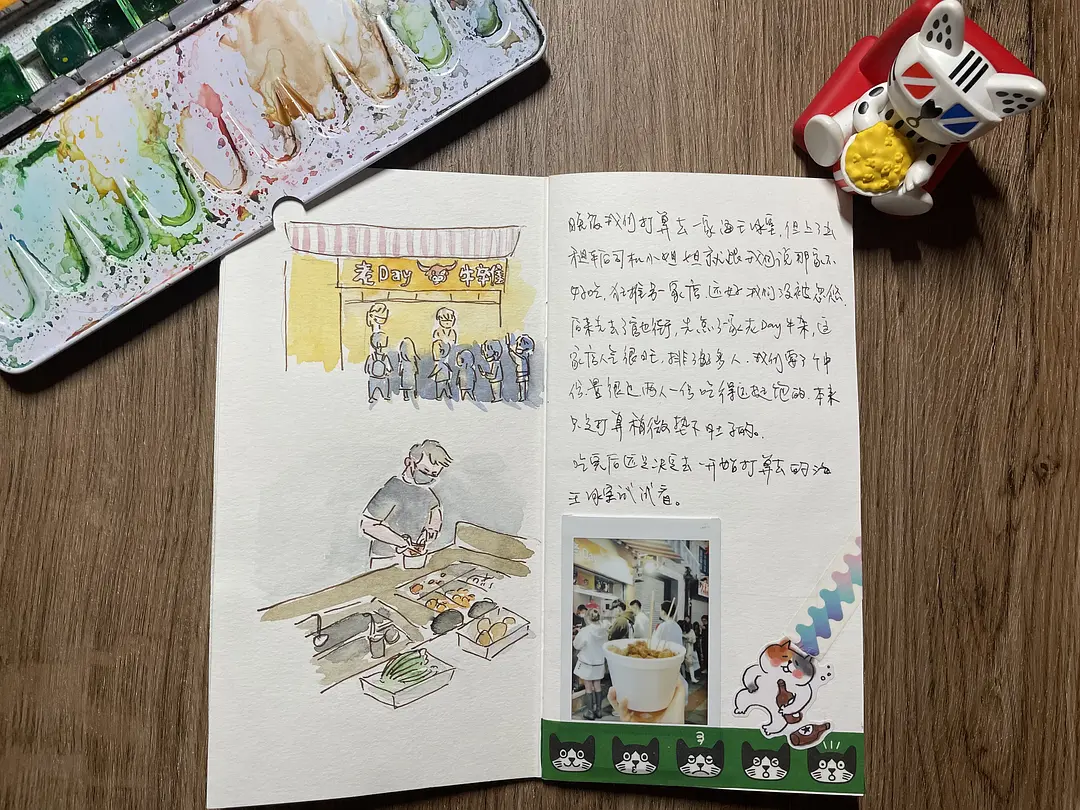 老Day 牛杂
晚饭我们打算去一家海王冰室,但上了出
租车后司机小姐姐就跟我们说那家不
好吃,狂推另一家店,还好我们没被忽悠.
后来先去了官也街,先点了一家老Day牛杂,这
家店人气很旺,排了很多人.我们要了中
份,量很足两人一份吃得还挺饱的,本来
只是打算稍微垫下肚子的。
吃完后还是决定去一开始打算去的海
王冰室试试看。